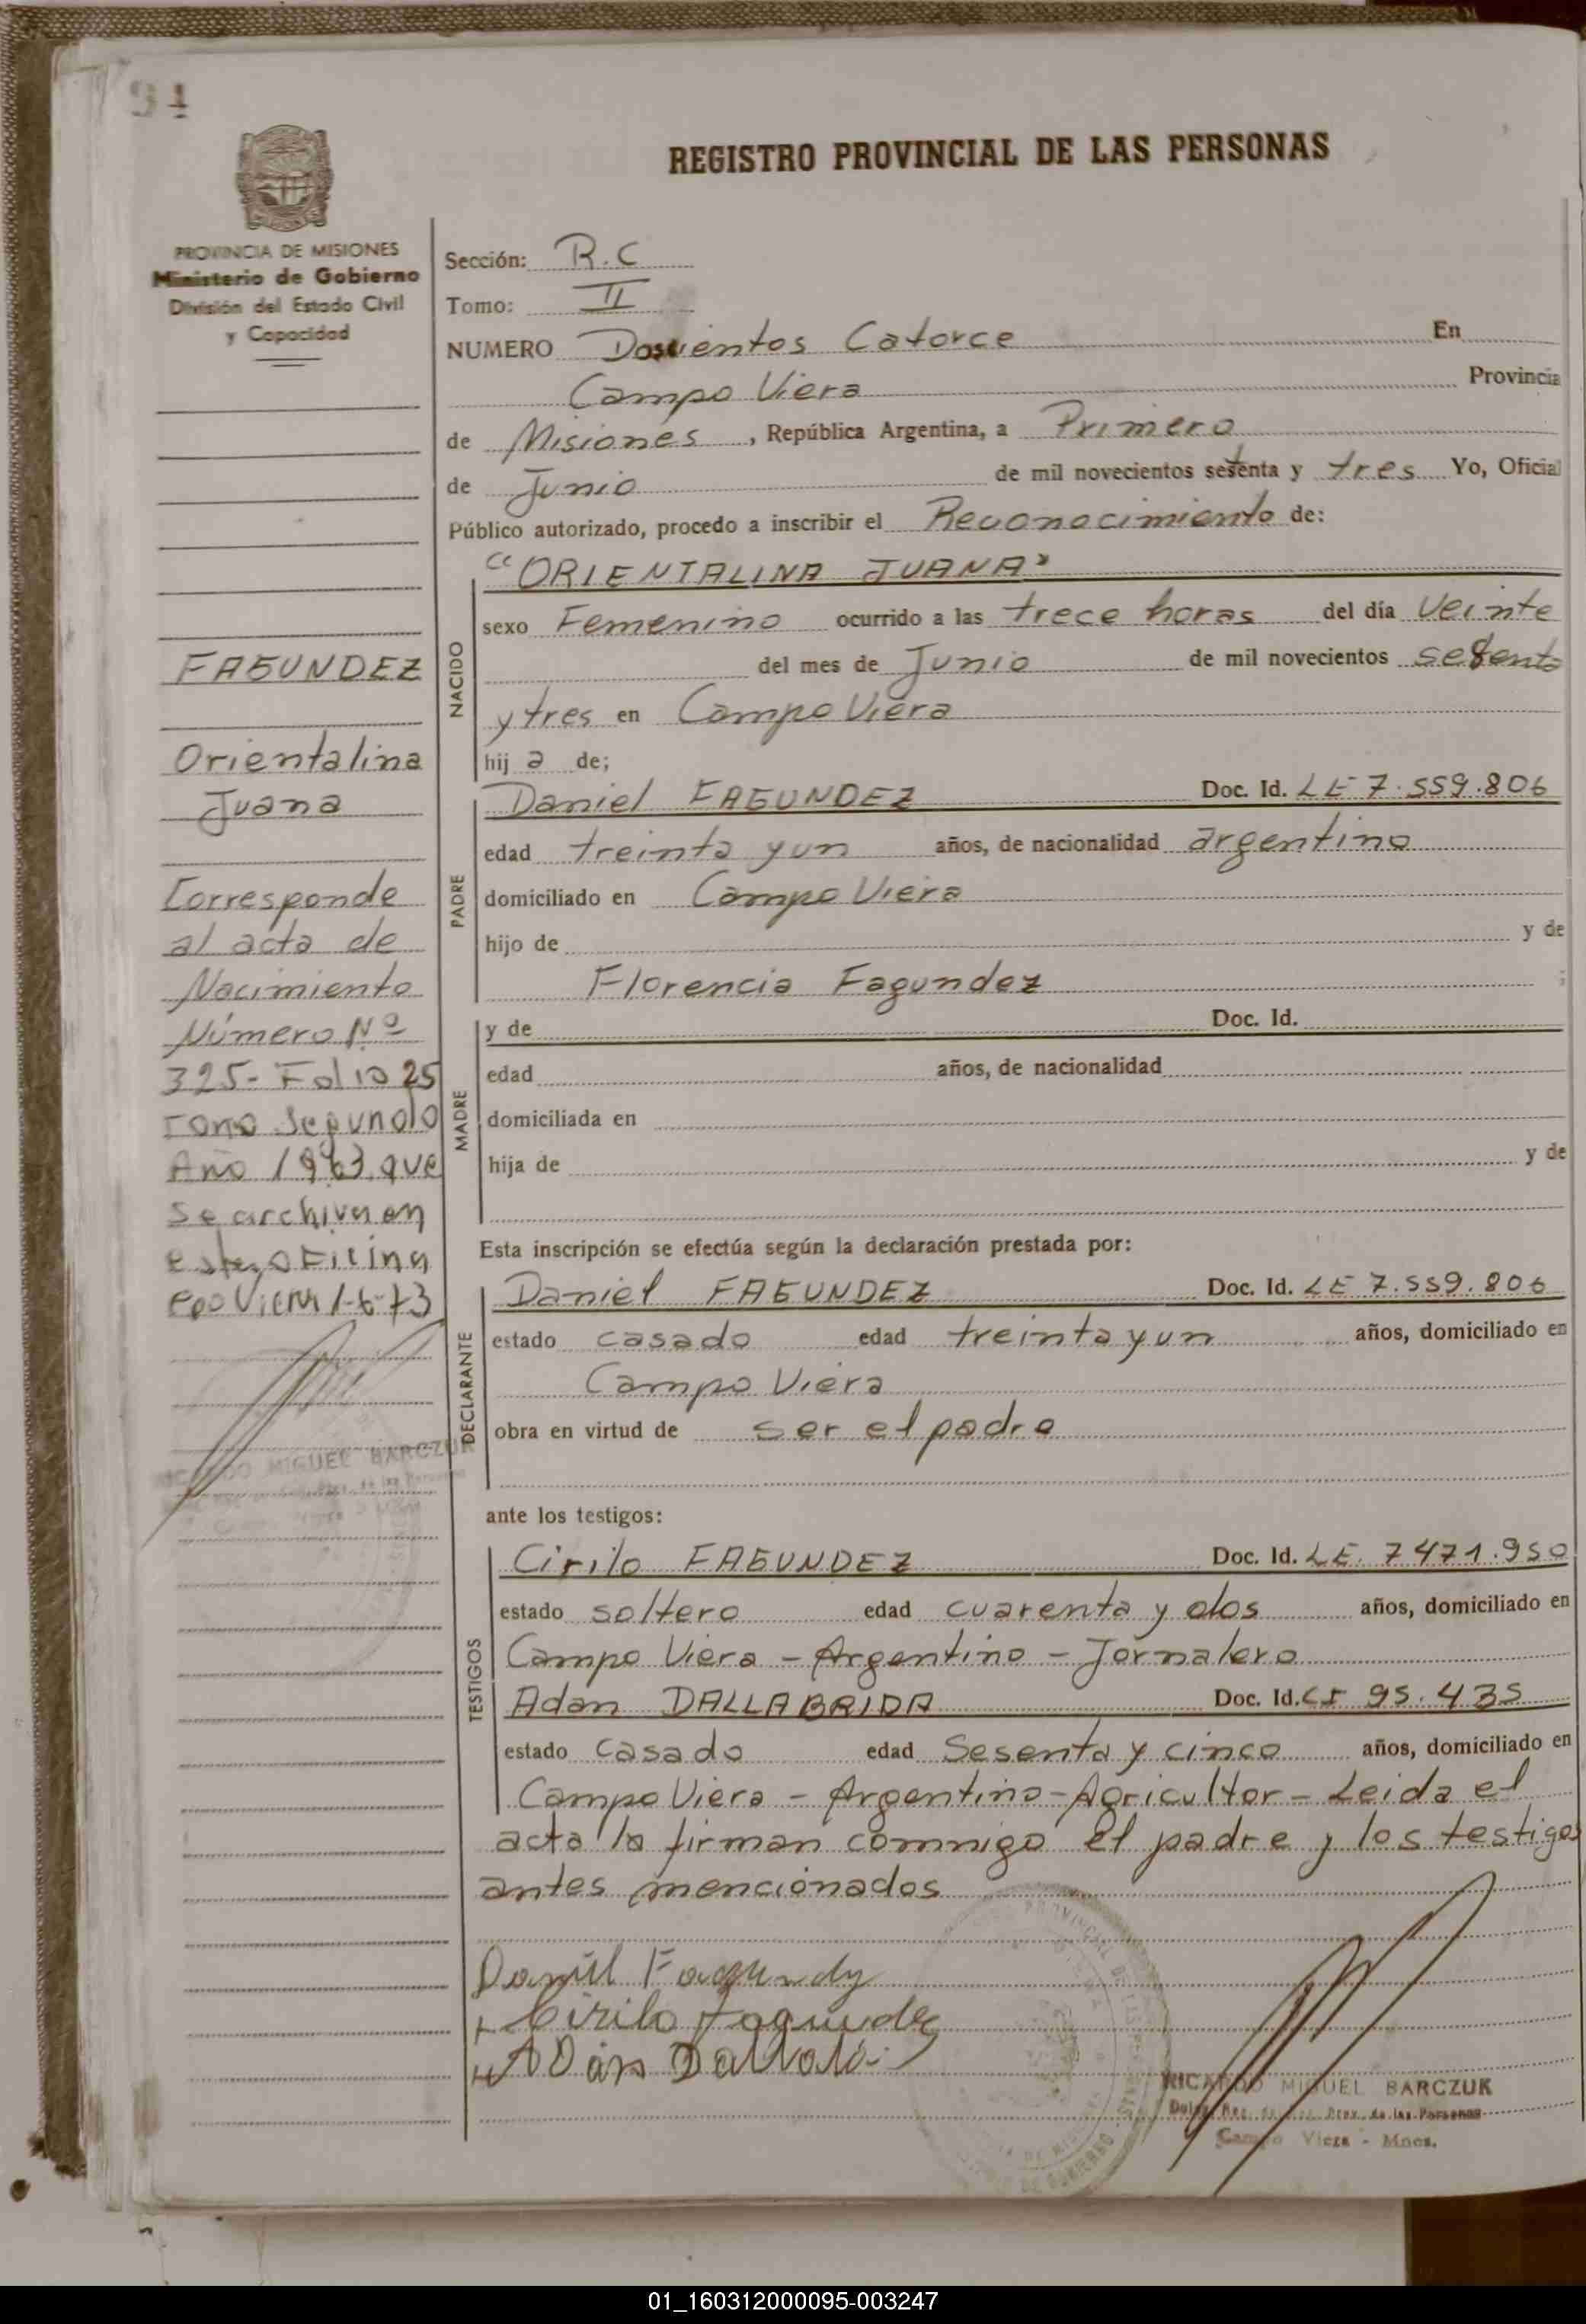 94
REGISTRO PROVINCIAL DE LAS PERSONAS
PROVINCIA DE MISIONES
Ministerio de Gobierno
División del Estado Civil
y Capacidad
FAGUNDEZ
Orientalina
Juana
Corresponde
al acta de
Nacimiento
Número Nº
325- Folio 25
Tomo Segundo
Año 1963 que
se archiva en
esta oficina
Cpo Viera 1-6-73
RICARDO MIGUEL BARCZUK
Sección: R.C
Tomo: II
NUMERO Doscientos Catorce En
Campo Viera Provincia
de Misiones, República Argentina, a Primero
de Junio de mil novecientos setenta y tres Yo, Oficial
Público autorizado, procedo a inscribir el Reconocimiento de:
NACIDO
"ORIENTALINA JUANA"
sexo Femenino ocurrido a las trece horas del día veinte
del mes de Junio de mil novecientos
y tres en Campo Viera
hija de;
PADRE
Daniel FAGUNDEZ Doc. Id. LE 7.559.806
edad treinta y un años, de nacionalidad argentino
domiciliado en Campo Viera
hijo de y de
Florencia Fagundez ;
MADRE
y de Doc. Id.
edad años, de nacionalidad
domiciliada en
hija de y de
Esta inscripción se efectúa según la declaración prestada por:
DECLARANTE
Daniel FAGUNDEZ Doc. Id. LE 7.559.806
estado casado edad treinta y un años, domiciliado en
Campo Viera
obra en virtud de ser el padre
ante los testigos:
TESTIGOS
Cirilo FAGUNDEZ Doc. Id. LE. 7471.950
estado soltero edad cuarenta y dos años, domiciliado en
Campo Viera - Argentino - Jornalero
Adan DALLABRIDA Doc. Id. CI 95.435
estado Casado edad Sesenta y cinco años, domiciliado en
Campo Viera - Argentino - Agricultor - Leida el
acta la firman comnigo el padre y los testigos
antes mencionados
Daniel Fagundez
Cirilo Fagundez
ADan
RICARDO MIGUEL BARCZUK
Prov. de las Personas
Campo Viera - Mnes.
01_160312000095-003247